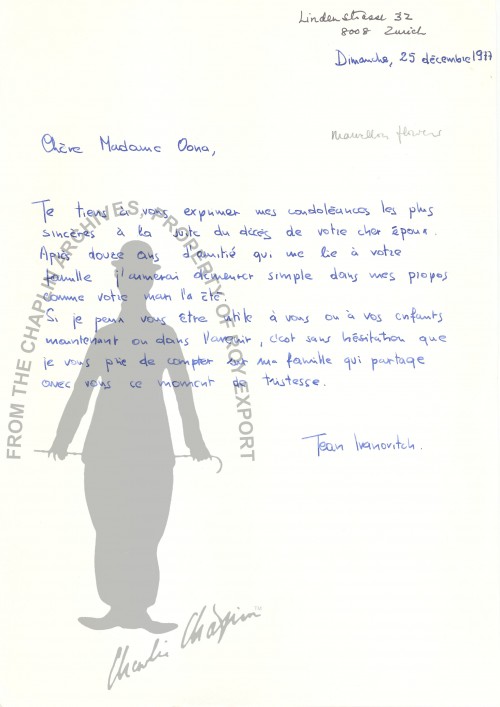 Lindenstrasse 32
8008 Zurich
Dimanche, 25 décembre 1977
flowers
Chère Madame Oona,
Je tiens à vous exprimer mes condoléances les plus
sincères à la suite du décès de votre cher époux.
Après douze ans d'amitié qui me lie à votre
famille j'aimerai demeurer simple dans mes propos
comme votre mari l'a été.
Si je peux vous être utile à vous ou à vos enfants
maintenant ou dans l'avenir, c'est sans hésitation que
je vous prie de compter sur ma famille qui partage
avec vous ce moment de tristesse.
Jean Ivanovitch.
FROM THE CHAPLIN ARCHIVES, PROPERTY OF ROY EXPORT
Charlie Chaplin™